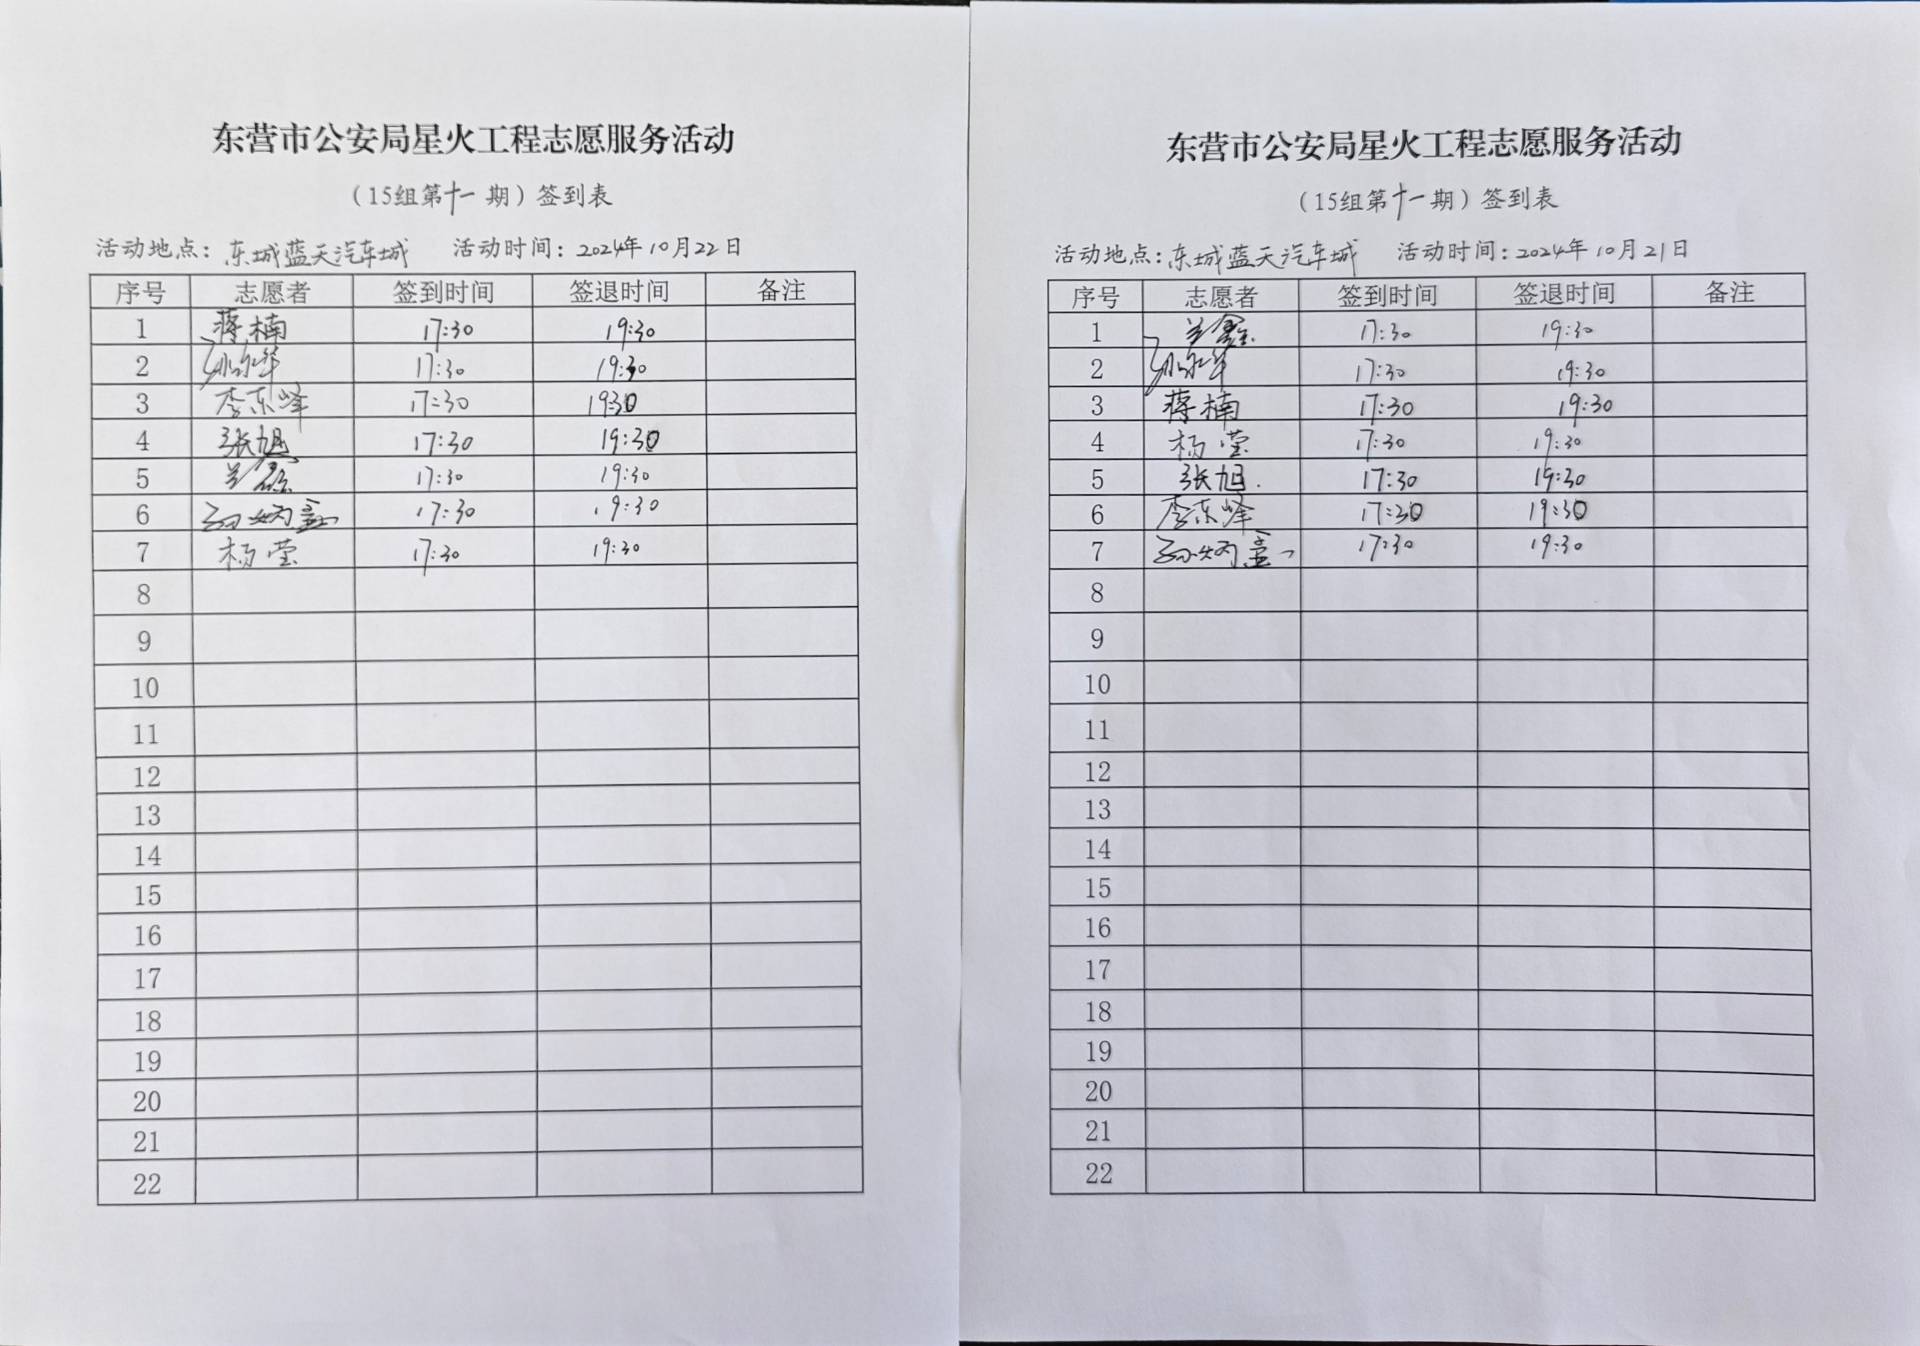 东营市公安局星火工程志愿服务活动
（15组第十一期）签到表
活动地点：东城蓝天汽车城 活动时间：2024年10月22日
序号 志愿者 签到时间 签退时间 备注
1 蒋楠 17:30 19:30
2 17:30 19:30
3 李东峰 17:30 19:30
4 张旭 17:30 19:30
5 兰鑫 17:30 19:30
6 17:30 19:30
7 杨莹 17:30 19:30
8
9
10
11
12
13
14
15
16
17
18
19
20
21
22
东营市公安局星火工程志愿服务活动
（15组第十一期）签到表
活动地点：东城蓝天汽车城 活动时间：2024年10月21日
序号 志愿者 签到时间 签退时间 备注
1 兰鑫 17:30 19:30
2 17:30 19:30
3 蒋楠 17:30 19:30
4 杨莹 17:30 19:30
5 张旭 17:30 19:30
6 李东峰 17:30 19:30
7 17:30 19:30
8
9
10
11
12
13
14
15
16
17
18
19
20
21
22